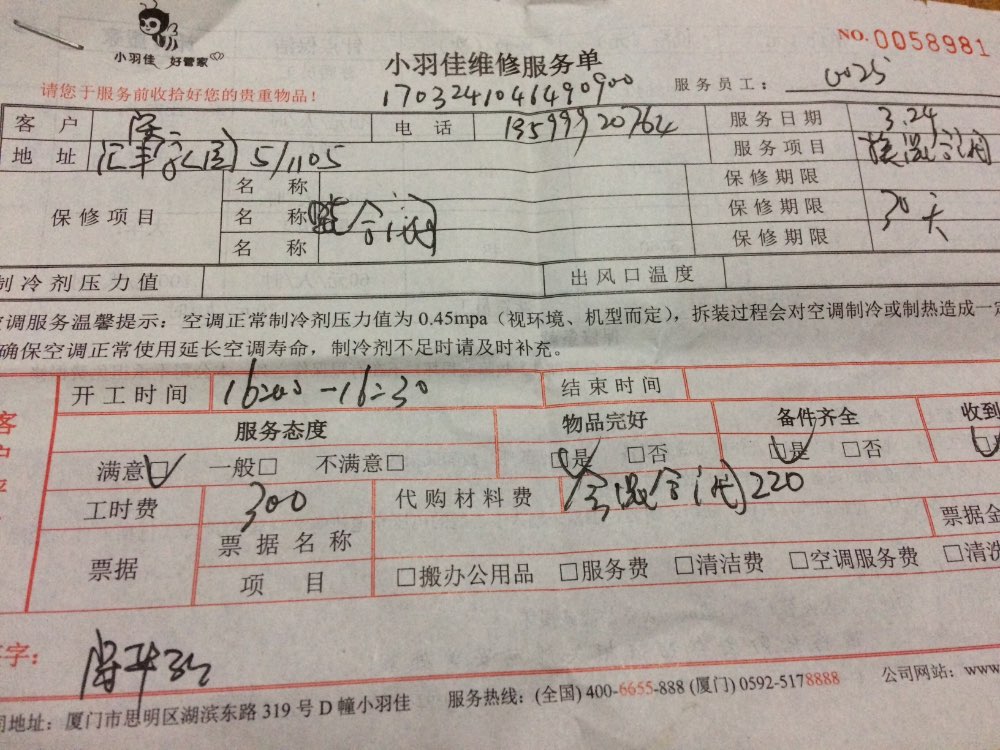 小羽佳 好管家
小羽佳维修服务单
NO.0058981
请您于服务前收拾好您的贵重物品！
1703241046490900
服务员工： 0025
客 户
电 话 13599920764
服务日期 3.24
地 址 5/1105
服务项目 换混合阀
保修项目
名 称
保修期限
名 称 混合阀
保修期限 30天
名 称
保修期限
制冷剂压力值
出风口温度
空调服务温馨提示：空调正常制冷剂压力值为 0.45mpa（视环境、机型而定），拆装过程会对空调制冷或制热造成一定
确保空调正常使用延长空调寿命，制冷剂不足时请及时补充。
开工时间 16:00-16:30
结束时间
服务态度
物品完好
备件齐全
收到
满意□ 一般□ 不满意□
□是 □否
□是 □否
工时费 300
代购材料费 混合阀220
票据
票据名称
票据金
项 目
□搬办公用品 □服务费 □清洁费 □空调服务费 □清洗
字：
司地址：厦门市思明区湖滨东路 319 号 D 幢小羽佳
服务热线：(全国) 400-6655-888 (厦门) 0592-5178888
公司网站：www